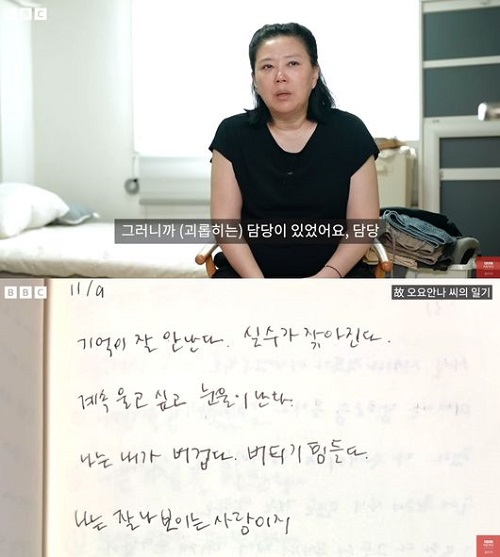 BBC
그러니까 (괴롭히는) 담당이 있었어요, 담당
BBC
11/9
故 오요안나 씨의 일기
기억이 잘 안난다. 실수가 잦아진다.
계속 울고 싶고 눈물이 난다.
나는 내가 버겁다. 버티기 힘들다.
나는 잘나 보이는 사람이지